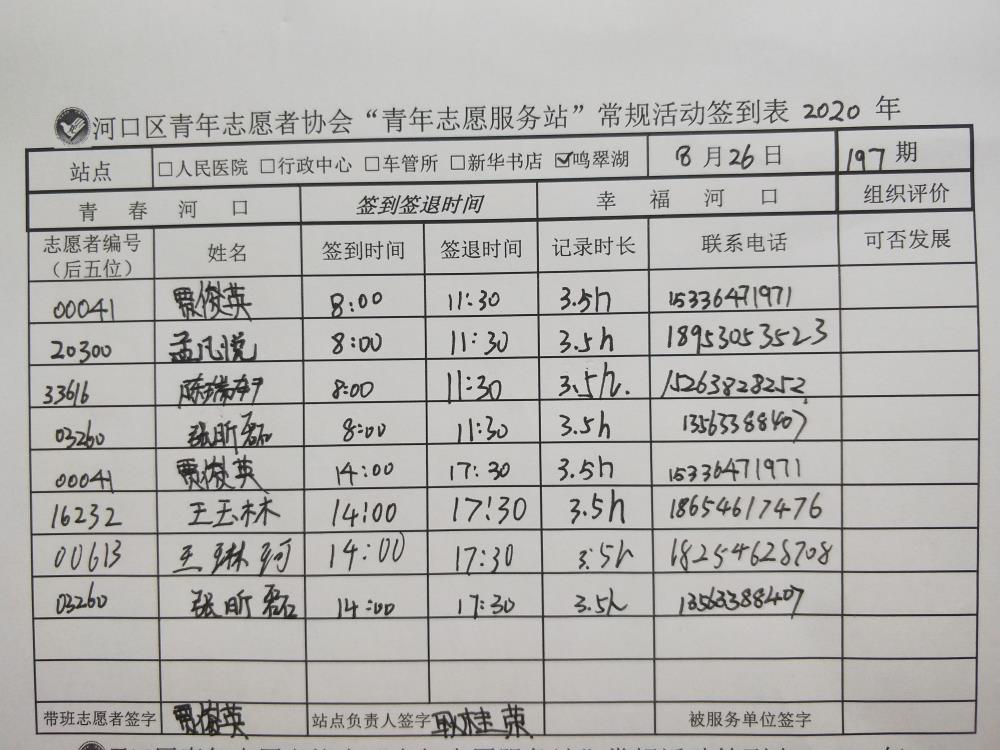 河口区青年志愿者协会“青年志愿服务站”常规活动签到表 2020 年
站点 □人民医院 □行政中心 □车管所 □新华书店 ☑鸣翠湖 8 月 26 日 197 期
青春河口 签到签退时间 幸福河口 组织评价
志愿者编号（后五位） 姓名 签到时间 签退时间 记录时长 联系电话 可否发展
00041 贾俊英 8:00 11:30 3.5h 15336471971
20300 孟凡悦 8:00 11:30 3.5h 18953053523
33616 8:00 11:30 3.5h. 15263828252
03260 张昕磊 8:00 11:30 3.5h 13563388407
00041 贾俊英 14:00 17:30 3.5h 15336471971
16232 王玉林 14:00 17:30 3.5h 18654617476
00613 王琳珂 14:00 17:30 3.5h 18254628708
03260 张昕磊 14:00 17:30 3.5h 13563388407
带班志愿者签字 贾俊英 站点负责人签字 耿桂荣 被服务单位签字